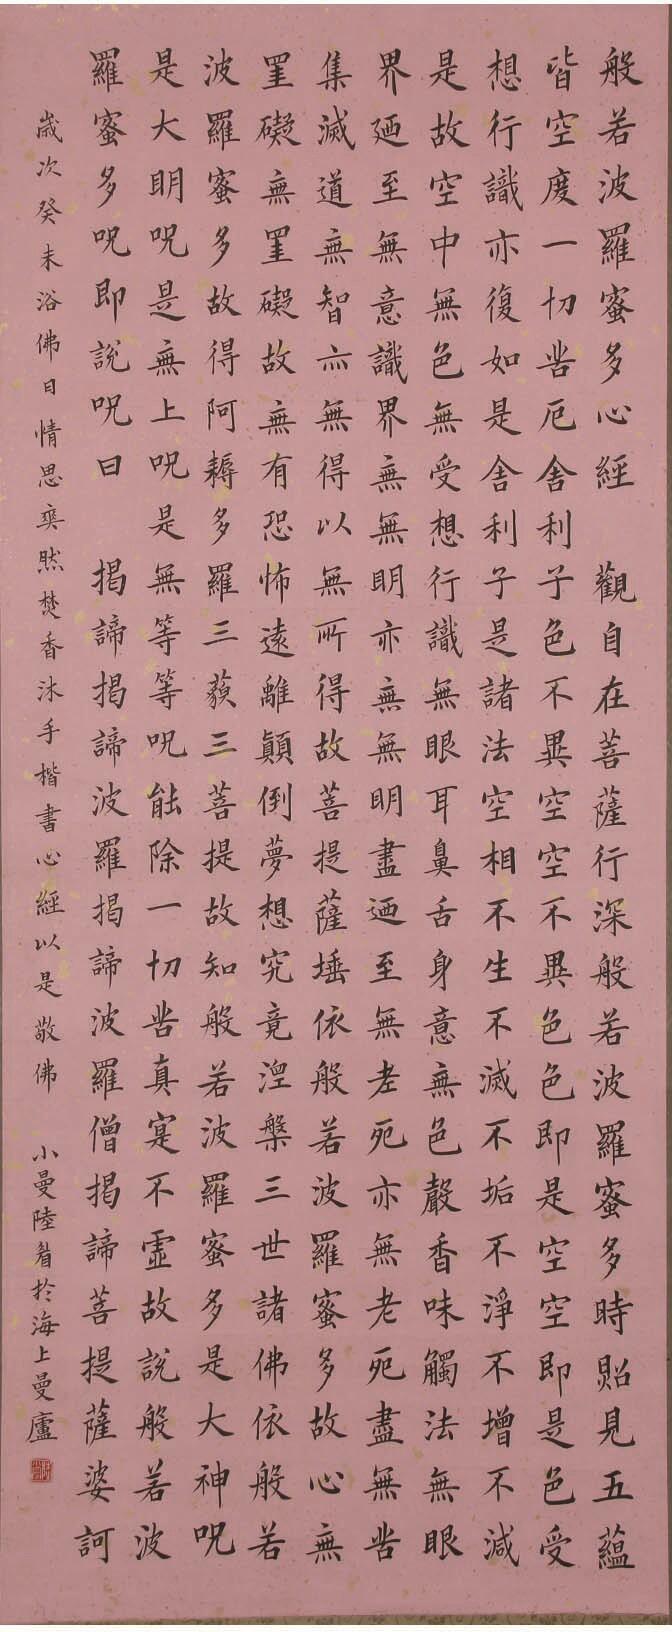 般若波羅蜜多心經 觀自在菩薩行深般若波羅蜜多時照見五蘊
皆空度一切苦厄舍利子色不異空空不異色色即是空空即是色受
想行識亦復如是舍利子是諸法空相不生不滅不垢不淨不增不減
是故空中無色無受想行識無眼耳鼻舌身意無色聲香味觸法無眼
界廼至無意識界無無明亦無無明盡廼至無老死亦無老死盡無苦
集滅道無智亦無得以無所得故菩提薩埵依般若波羅蜜多故心無
罣礙無罣礙故無有恐怖遠離顛倒夢想究竟涅槃三世諸佛依般若
波羅蜜多故得阿耨多羅三藐三菩提故知般若波羅蜜多是大神呪
是大明呪是無上呪是無等等呪能除一切苦真寔不虛故說般若波
羅蜜多呪即說呪曰 揭諦揭諦波羅揭諦波羅僧揭諦菩提薩婆訶
歲次癸未浴佛日情思奕然焚香沐手楷書心經以是敬佛 小曼陸眉於海上曼廬